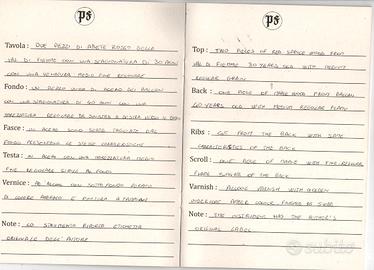 ps
Tavola: DUE PEZZI DI ABETE ROSSO DELLA
VAL DI FIEMME CON UNA STAGIONATURA DI 30 ANNI
CON UNA VENATURA MEDIO FINE REGOLARE
Fondo: IN ACERO DI ACERO DEI BALCANI
CON UNA STAGIONATURA DI 60 ANNI CON UNA
MAREZZATURA REGOLARE DA SINISTRA A DESTRA VERSO IL
Fasce: IN ACERO SONO STATE TAGLIATE DAL
FONDO PRESENTANO LE STESSE CARATTERISTICHE
Testa: IN ACERO CON UNA MAREZZATURA MEDIO
FINE REGOLARE SIMILE AL FONDO
Vernice: AD ALCOOL CON SOTTOFONDO DORATO
DI COLORE AMBRATO E FINITURA A TAMPONE
Note: LO STRUMENTO RIPORTA ETICHETTA
ORIGINALE DELL'AUTORE
ps
Top: TWO PIECES OF RED SPRUCE WOOD FROM
VAL DI FIEMME 30 YEARS OLD WITH MEDIUM
REGULAR GRAIN
Back: ONE PIECE OF MAPLE WOOD FROM BALCAN
60 YEARS OLD WITH MEDIUM REGULAR FLAMY
Ribs: CUT FROM THE BACK WITH SAME
CHARACTERISTICS OF THE BACK
Scroll: ONE PIECE OF MAPLE WITH FINE REGULAR
FLAME SIMILAR OF THE BACK
Varnish: ALCOOL VARNISH WITH GOLDEN
AMBER COLOUR FINISHED BY
Note: THE INSTRUMENT HAS THE AUTHOR'S
ORIGINAL LABEL
subito